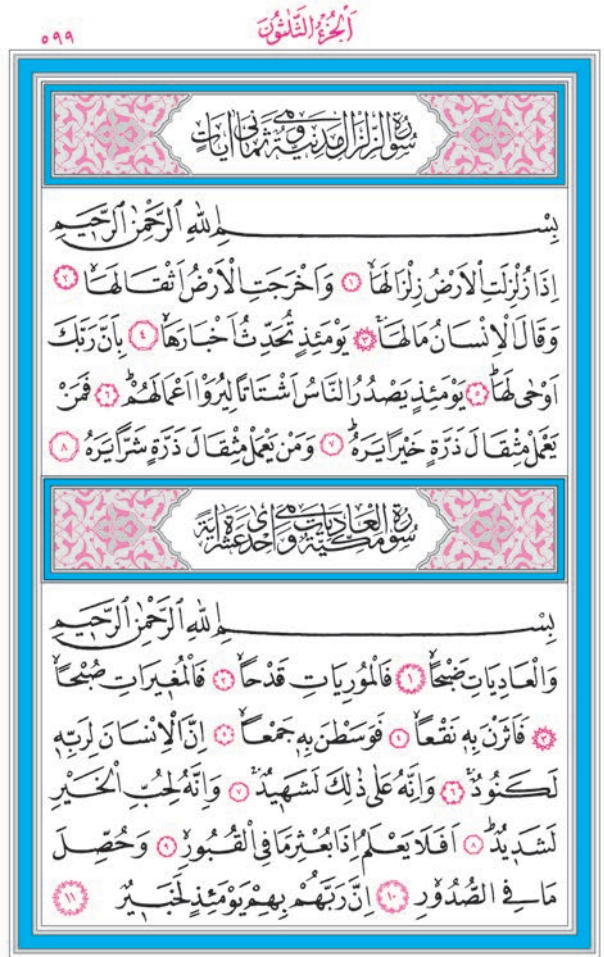 اَلْجُزْءُ الثَّلٰثُونَ
٥٩٩
سُورَةُ الزِّلْزَالِ مَدَنِيَّةٌ وَهِيَ ثَمَانِي اٰيَاتٍ
بِسْمِ اللّٰهِ الرَّحْمٰنِ الرَّحِيمِ
اِذَا زُلْزِلَتِ الْاَرْضُ زِلْزَالَهَاۙ ﴿١﴾ وَاَخْرَجَتِ الْاَرْضُ اَثْقَالَهَاۙ ﴿٢﴾
وَقَالَ الْاِنْسَانُ مَا لَهَاۚ ﴿٣﴾ يَوْمَئِذٍ تُحَدِّثُ اَخْبَارَهَاۙ ﴿٤﴾ بِاَنَّ رَبَّكَ
اَوْحٰى لَهَاۜ ﴿٥﴾ يَوْمَئِذٍ يَصْدُرُ النَّاسُ اَشْتَاتاً لِيُرَوْا اَعْمَالَهُمْۜ ﴿٦﴾ فَمَنْ
يَعْمَلْ مِثْقَالَ ذَرَّةٍ خَيْراً يَرَهُۜ ﴿٧﴾ وَمَنْ يَعْمَلْ مِثْقَالَ ذَرَّةٍ شَرّاً يَرَهُ ﴿٨﴾
سُورَةُ الْعَادِيَاتِ مَكِّيَّةٌ وَهِيَ اِحْدٰى عَشْرَةَ اٰيَةً
بِسْمِ اللّٰهِ الرَّحْمٰنِ الرَّحِيمِ
وَالْعَادِيَاتِ ضَبْحاًۙ ﴿١﴾ فَالْمُورِيَاتِ قَدْحاًۙ ﴿٢﴾ فَالْمُغِيرَاتِ صُبْحاًۙ
﴿٣﴾ فَاَثَرْنَ بِهِ نَقْعاًۙ ﴿٤﴾ فَوَسَطْنَ بِهِ جَمْعاًۙ ﴿٥﴾ اِنَّ الْاِنْسَانَ لِرَبِّهِ
لَكَنُودٌۚ ﴿٦﴾ وَاِنَّهُ عَلٰى ذٰلِكَ لَشَهِيدٌۚ ﴿٧﴾ وَاِنَّهُ لِحُبِّ الْخَيْرِ
لَشَدِيدٌۜ ﴿٨﴾ اَفَلَا يَعْلَمُ اِذَا بُعْثِرَ مَا فِي الْقُبُورِۙ ﴿٩﴾ وَحُصِّلَ
مَا فِي الصُّدُورِۙ ﴿١٠﴾ اِنَّ رَبَّهُمْ بِهِمْ يَوْمَئِذٍ لَخَبِيرٌ ﴿١١﴾